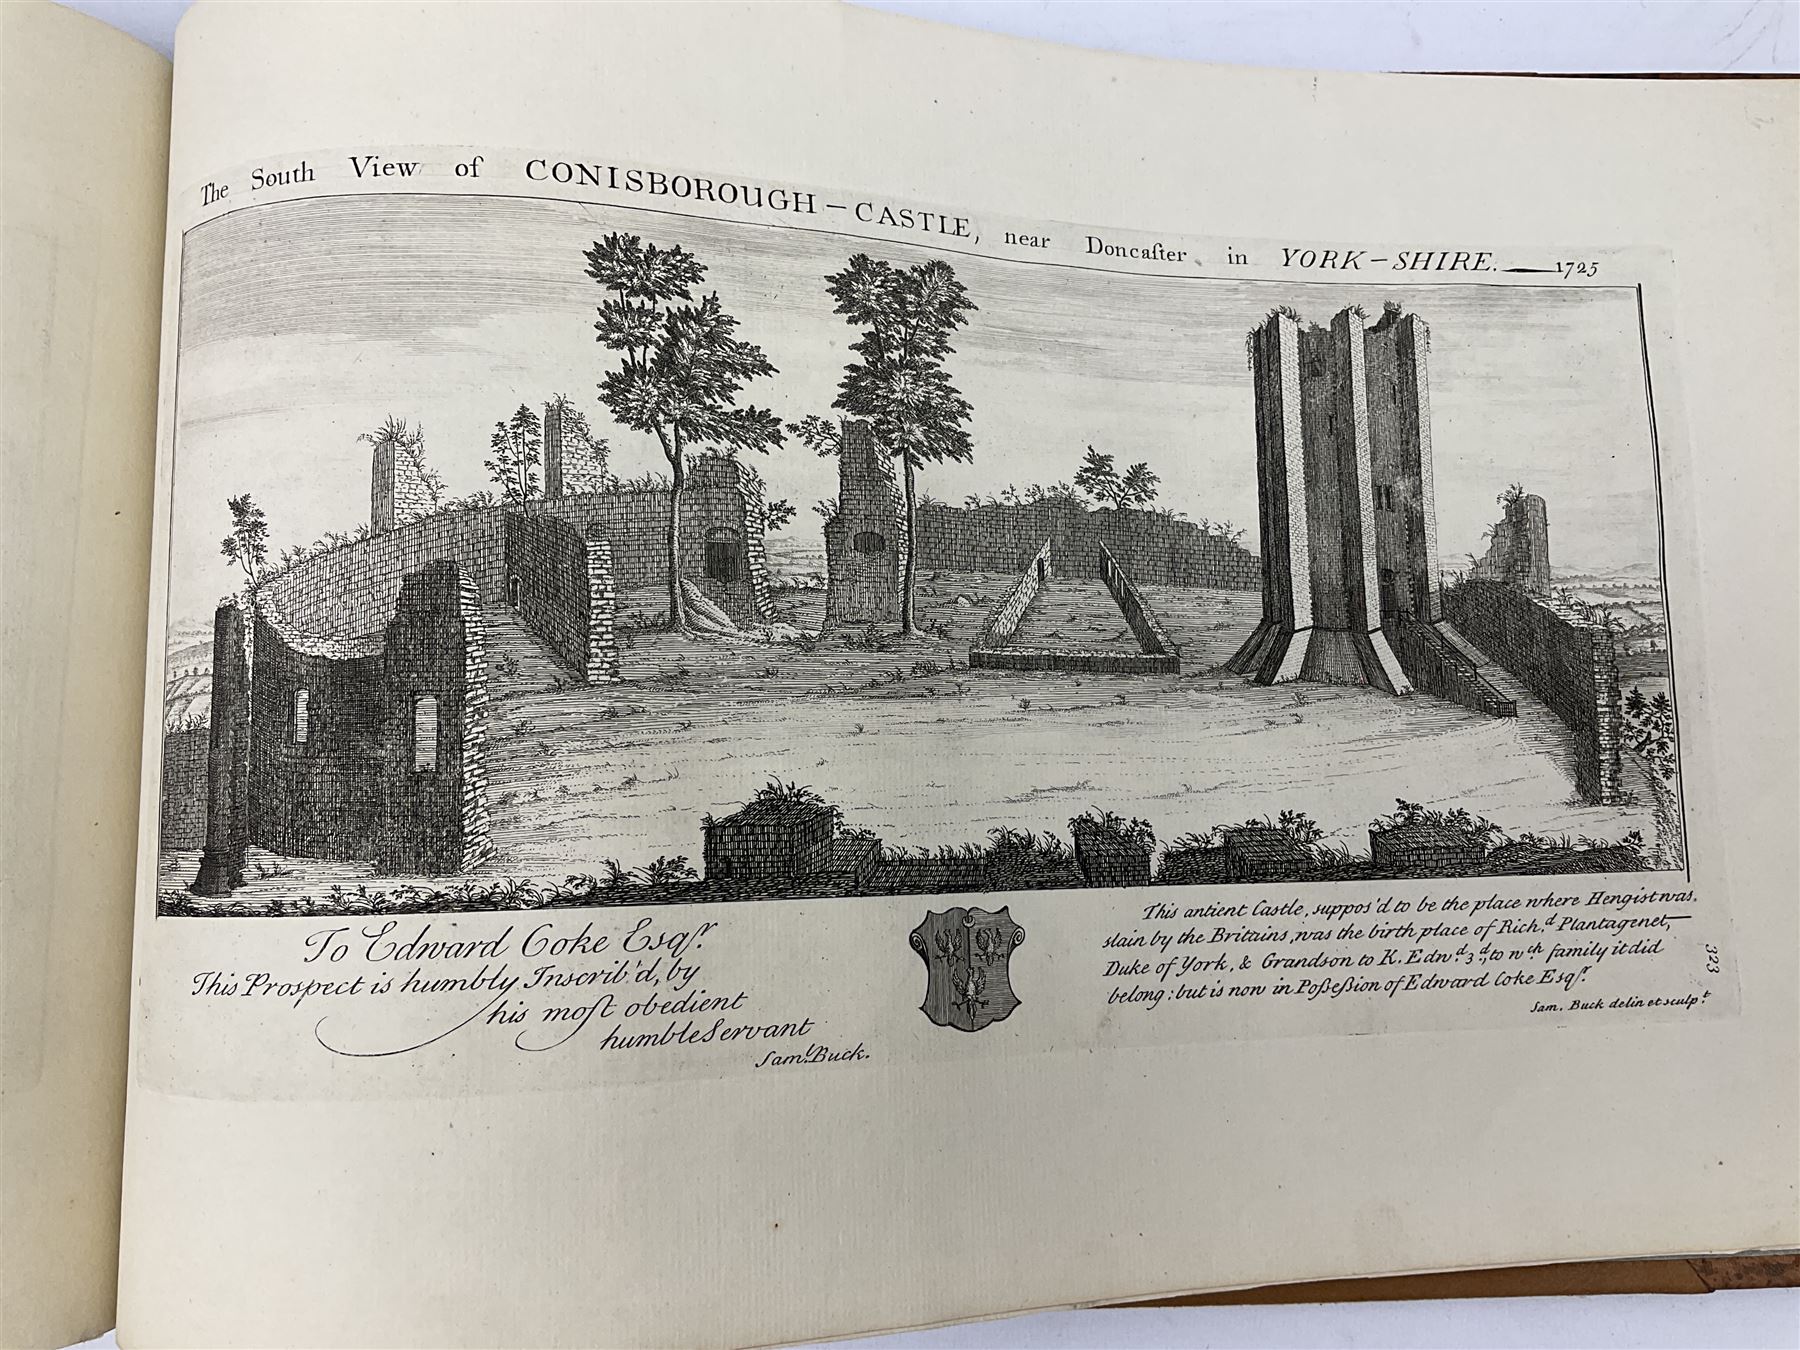 The South View of CONISBOROUGH-CASTLE, near Doncaſter in YORK-SHIRE. 1725
To Edward Coke Esqr.
This Prospect is humbly Inscrib'd, by
his moſt obedient
humble Servant
Saml. Buck.
This antient Castle, suppos'd to be the place where Hengist was
slain by the Britains, was the birth place of Rich.d Plantagenet,
Duke of York, & Grandson to K. Edw.d 3.d, to wch. family it did
belong: but is now in Poſseſsion of Edward Coke Esqr.
Sam. Buck delin et sculp.t
323